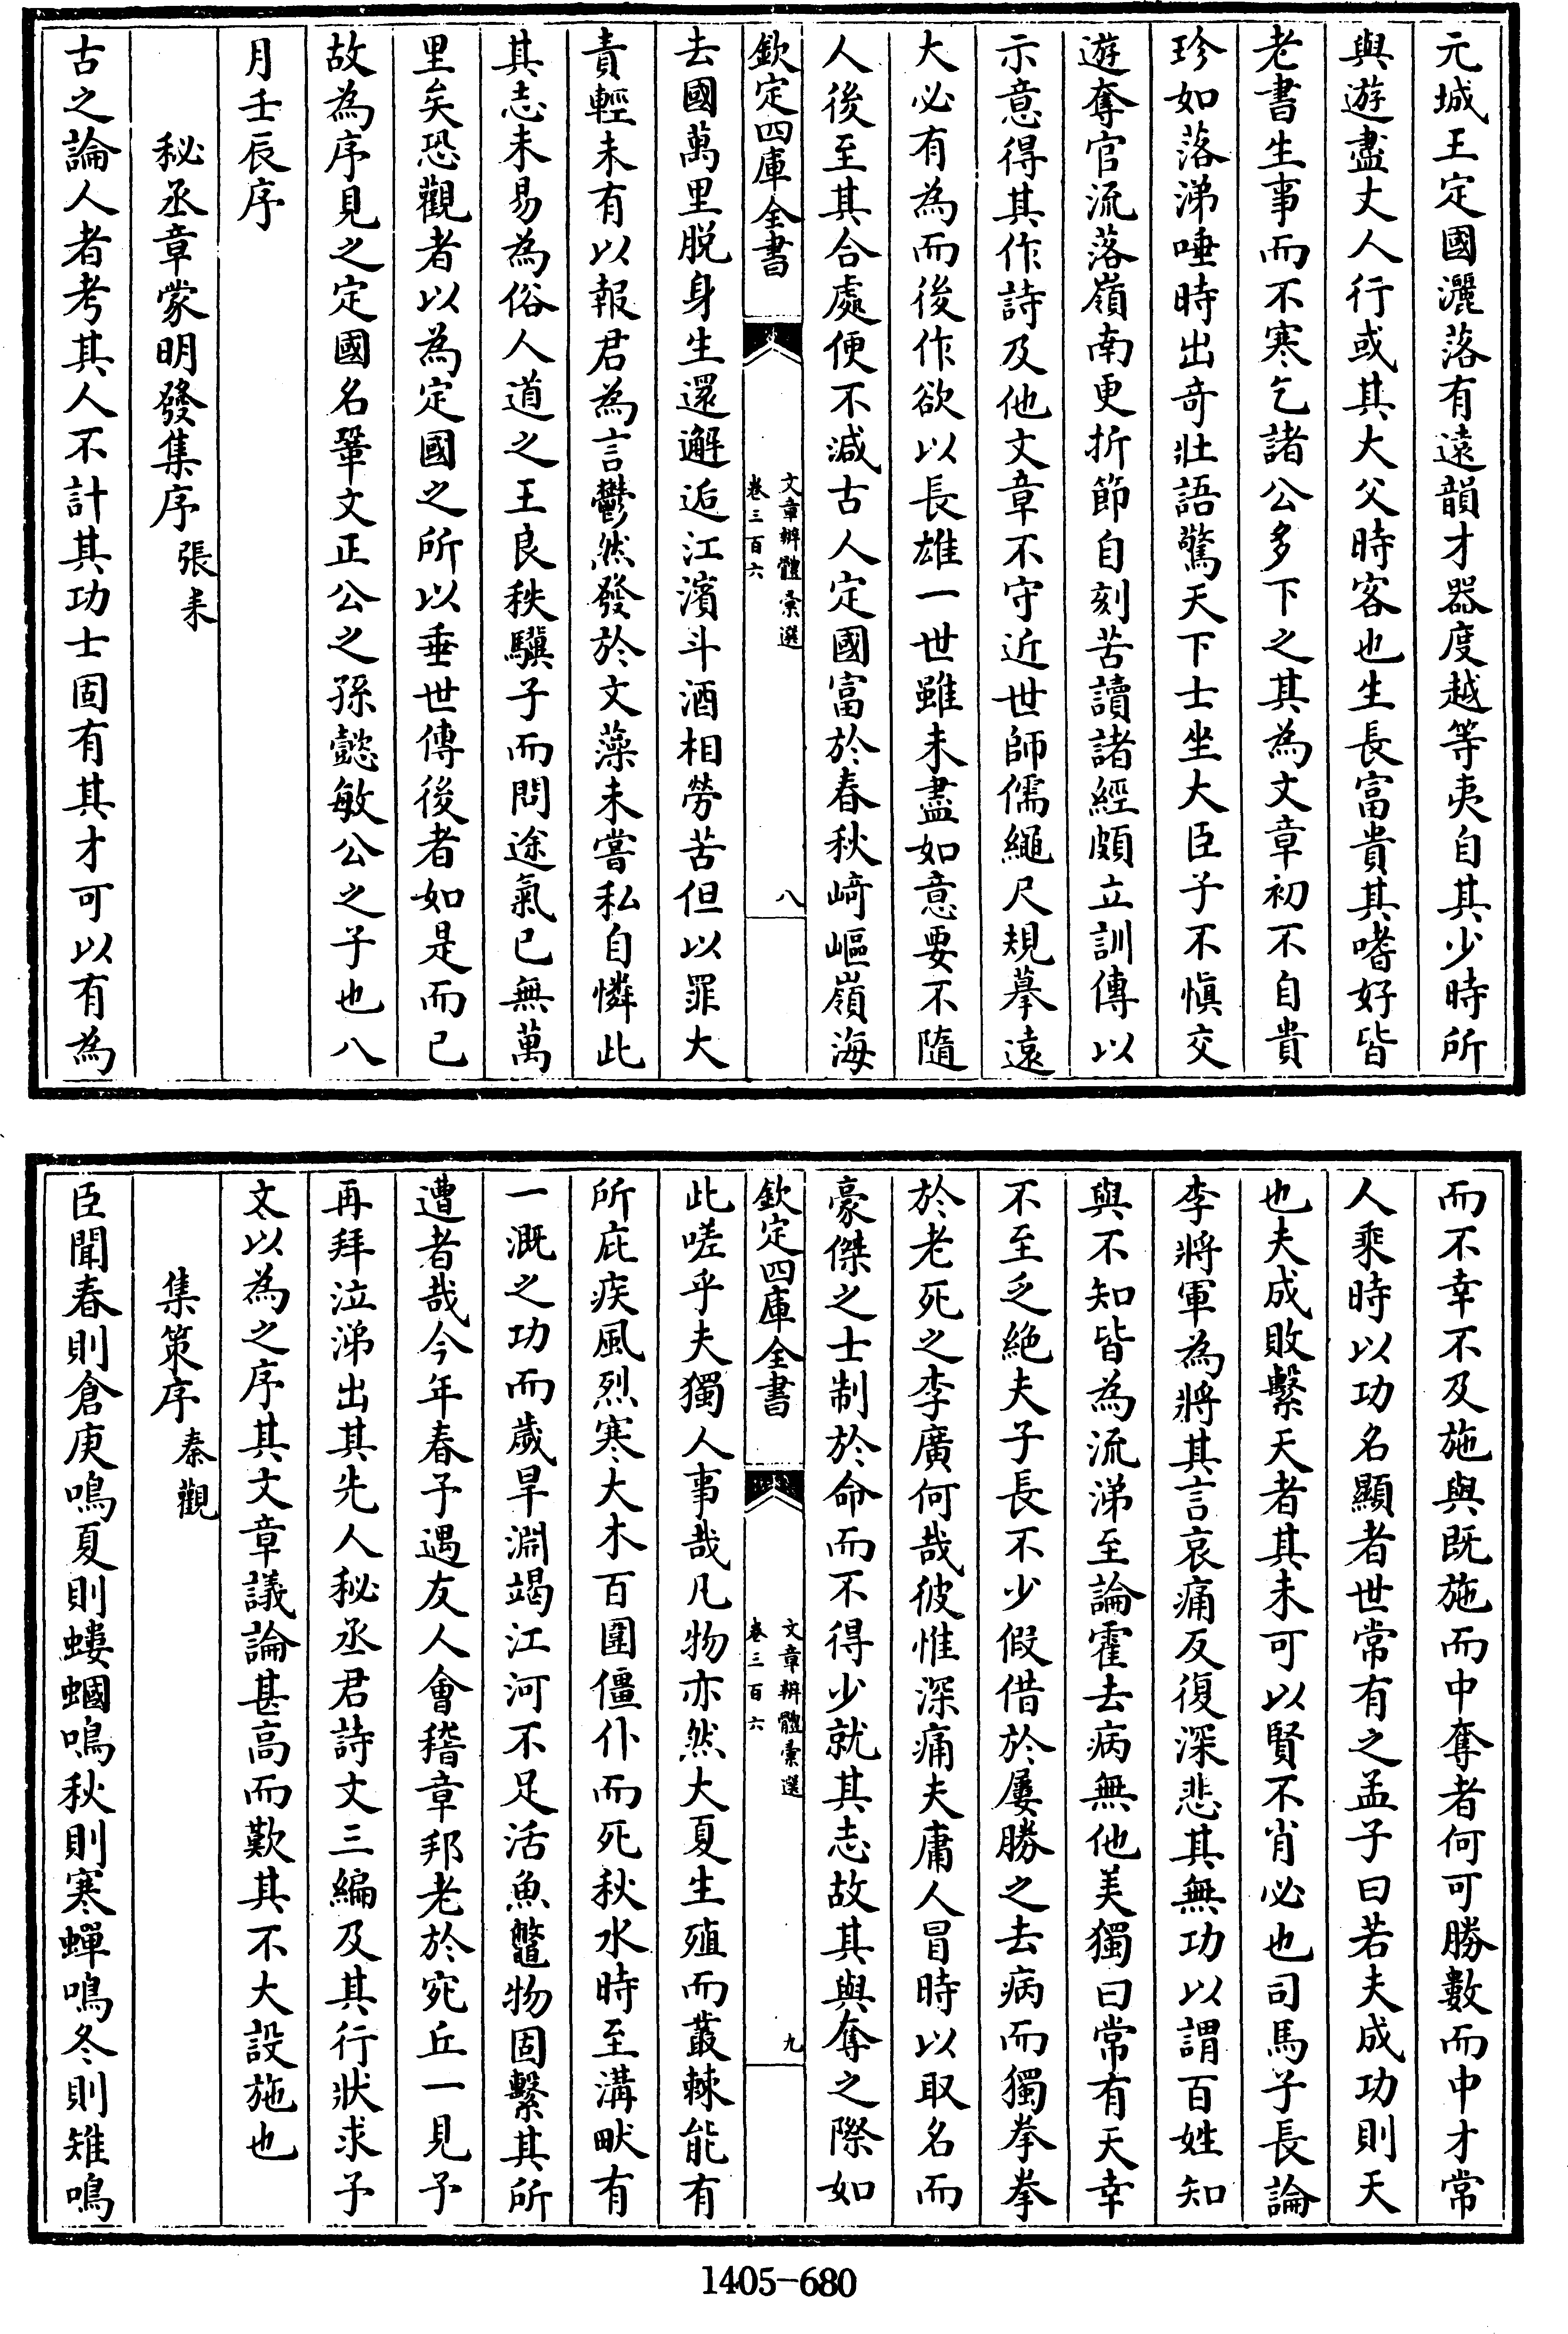 元城王定國灑落有遠韻才器度越等夷自其少時所
與遊盡丈人行或其大父時客也生長富貴其嗜好皆
老書生事而不寒乞諸公多下之其為文章初不自貴
珍如落涕唾時出奇壯語驚天下士坐大臣子不慎交
遊奪官流落嶺南更折節自刻苦讀諸經頗立訓傳以
示意得其作詩及他文章不守近世師儒繩尺規摹遠
大必有為而後作欲以長雄一世雖未盡如意要不隨
人後至其合處便不減古人定國富於春秋崎嶇嶺海
欽定四庫全書
文章辨體彚選
卷三百六
八
去國萬里脱身生還邂逅江濱斗酒相勞苦但以罪大
責輕未有以報君為言鬱然發於文藻未嘗私自憐此
其志未易為俗人道之王良秩驥子而問途氣已無萬
里矣恐觀者以為定國之所以垂世傳後者如是而已
故為序見之定國名鞏文正公之孫懿敏公之子也八
月壬辰序
秘丞章蒙明發集序張耒
古之論人者考其人不計其功士固有其才可以有為
而不幸不及施與既施而中奪者何可勝數而中才常
人乘時以功名顯者世常有之孟子曰若夫成功則天
也夫成敗繫天者其未可以賢不肖必也司馬子長論
李將軍為將其言哀痛反復深悲其無功以謂百姓知
與不知皆為流涕至論霍去病無他美獨曰常有天幸
不至乏絶夫子長不少假借於屢勝之去病而獨拳拳
於老死之李廣何哉彼惟深痛夫庸人冒時以取名而
豪傑之士制於命而不得少就其志故其與奪之際如
欽定四庫全書
文章辨體彚選
卷三百六
九
此嗟乎夫獨人事哉凡物亦然大夏生殖而叢棘能有
所庇疾風烈寒大木百圍僵仆而死秋水時至溝畎有
一溉之功而歲旱淵竭江河不足活魚鼈物固繫其所
遭者哉今年春予遇友人會稽章邦老於宛丘一見予
再拜泣涕出其先人秘丞君詩文三編及其行狀求予
文以為之序其文章議論甚高而歎其不大設施也
集策序秦觀
臣聞春則倉庚鳴夏則螻蟈鳴秋則寒蟬鳴冬則雉鳴
1405-680